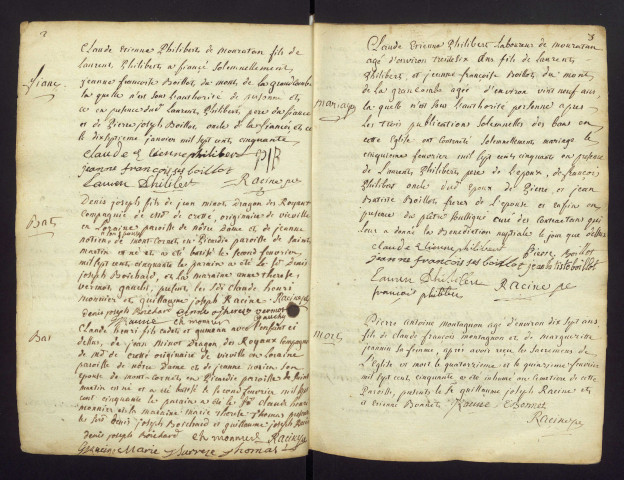 2
fianc
Claude Etienne Philibert de monratan fils de
Laurent Philibert a fiancé Solemnellement,
jeanne francoise Boillot, du mont, de la grand combe
la quelle n'est sous l'authorité de personne et,
ce en presence dud. Laurent Philibert pere du fiancé
et de Pierre joseph Boillot oncle de la fiancée et ce
le dixseptieme janvier mil sept cents cinquante
claude Etienne philibert
jeanne françoisses boillot
Lauran Philibert Racine ptre
Bat
Denis joseph fils de jean minot dragon des Royaux
Compagnie de de originaire de
en Loraine paroisse de nôtre dame et de jeanne
de mont-cornet en Picardie paroisse de saint
martin est né et a été batisé le second fevrier
mil sept cent cinquante le parain a été le Sr denis
joseph Boichard, et la maraine anne therese
vermot gaud, presents les Srs claude henri
monnier et guillaume joseph Racine Racine ptre
denis joseph Boichard anne therese vermot
Racine ch monnier gauchy
Bat
Claude henri fils et jumeau avec l'enfant ci
dessus, de jean minot dragon des Royaux Compagnie
de de originaire de en Loraine
paroisse de nôtre Dame et de jeanne son
epouse de mont-cornet en Picardie paroisse de saint
martin est né et a été batisé le second fevrier mil sept
cent cinquante le parain a été le Sr claude henri
monnier et la maraine marie therese Thomas presents
les Srs denis joseph Boichard et guillaume joseph Racine
denis joseph Boichard ch monnier Racine ptre
Racine Marie Therese Thomas
3
mariage
Claude Etienne Philibert laboureur de monratan
agé d'environ trente six ans fils de Laurent
Philibert, et jeanne françoise Boillot du mont
de la grancombe agée d'environ vint neuf ans
la quelle n'est sous l'authorité personne apres
les trois publications Solemnelles des bans en
cette Eglise ont contracté Solemnellement mariage le
cinquieme fevrier mil sept cents cinquante en presence
de Laurent Philibert pere de l'epoux, de françois
Philibert oncle dud. epoux de Pierre et jean
Batiste Boillot freres de l'epouse et enfin en
presence du prêtre soussigné curé des contractans qui
leur a donné la Benediction nuptiale le jour que dessus
claude Etienne philibert Pierre Boillot
jeanne françoisses boillot jean batiste boillot
Lauran Philibert Racine ptre
françois philibert
mort
Pierre Antoine montagnon agé d'environ dix sept ans
fils de claude françois montagnon et de marguerite
jeannin sa femme, apres avoir reçu les sacremens de
L'Eglise est mort le quatorzieme et le quinzieme fevrier
mil sept cent cinquante a été inhumé au cimetiere de cette
Paroisse, presents le Sr guillaume joseph Racine et
et etienne Bonnet Racine E Bonnet
Racine ptre